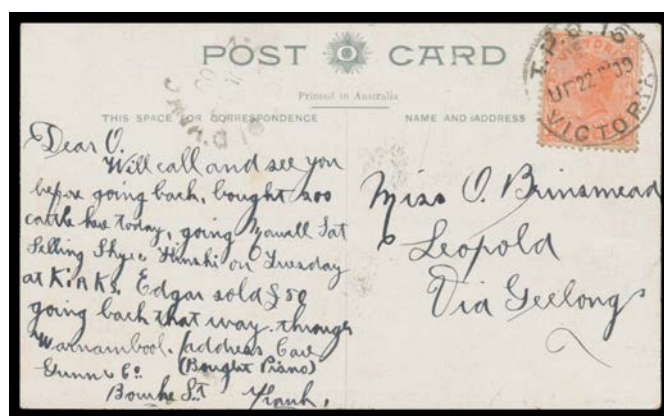 POST CARD
Printed in Australia
THIS SPACE FOR CORRESPONDENCE
NAME AND ADDRESS
T.P.O. 16
VICTORIA
UP 22 09
VICTORIA
Dear O.
Will call and see you
before going back, bought 200
cattle here today, going Sat
Selling on Tuesday
at Kirks. Edgar sold £50
going back that way through
Warnambool. (address Care
Gunn & Co. (Bought Piano)
Bourke St Frank,
Miss O. Brinsmead
Leopold
Via Geelong